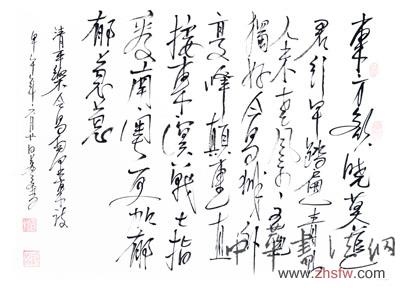 東方欲曉莫道
君行早踏遍青山
人未老風景這邊
獨好会昌城外
高峰顛連直
接東溟戰士指
看南粵更加郁
郁葱葱
清平樂会昌
www.2hsfw.com